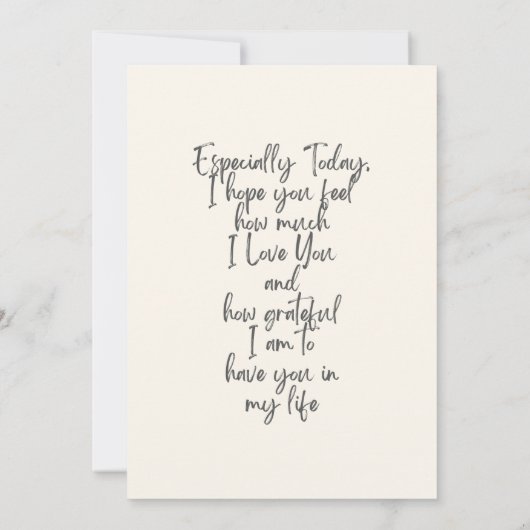 Especially Today,
I hope you feel
how much
I Love You
and
how grateful
I am to
have you in
my life